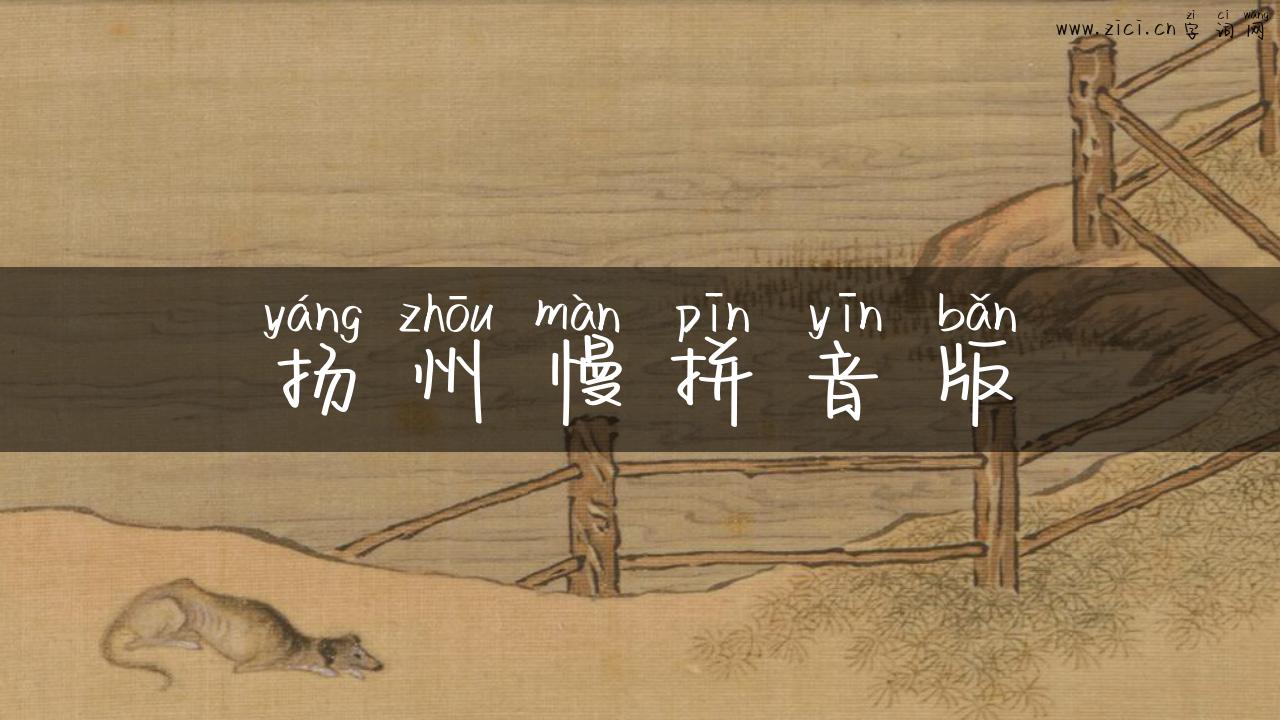 zi ci wang
www.zici.cn 字词网
yáng zhōu màn pīn yīn bǎn
扬州慢拼音版